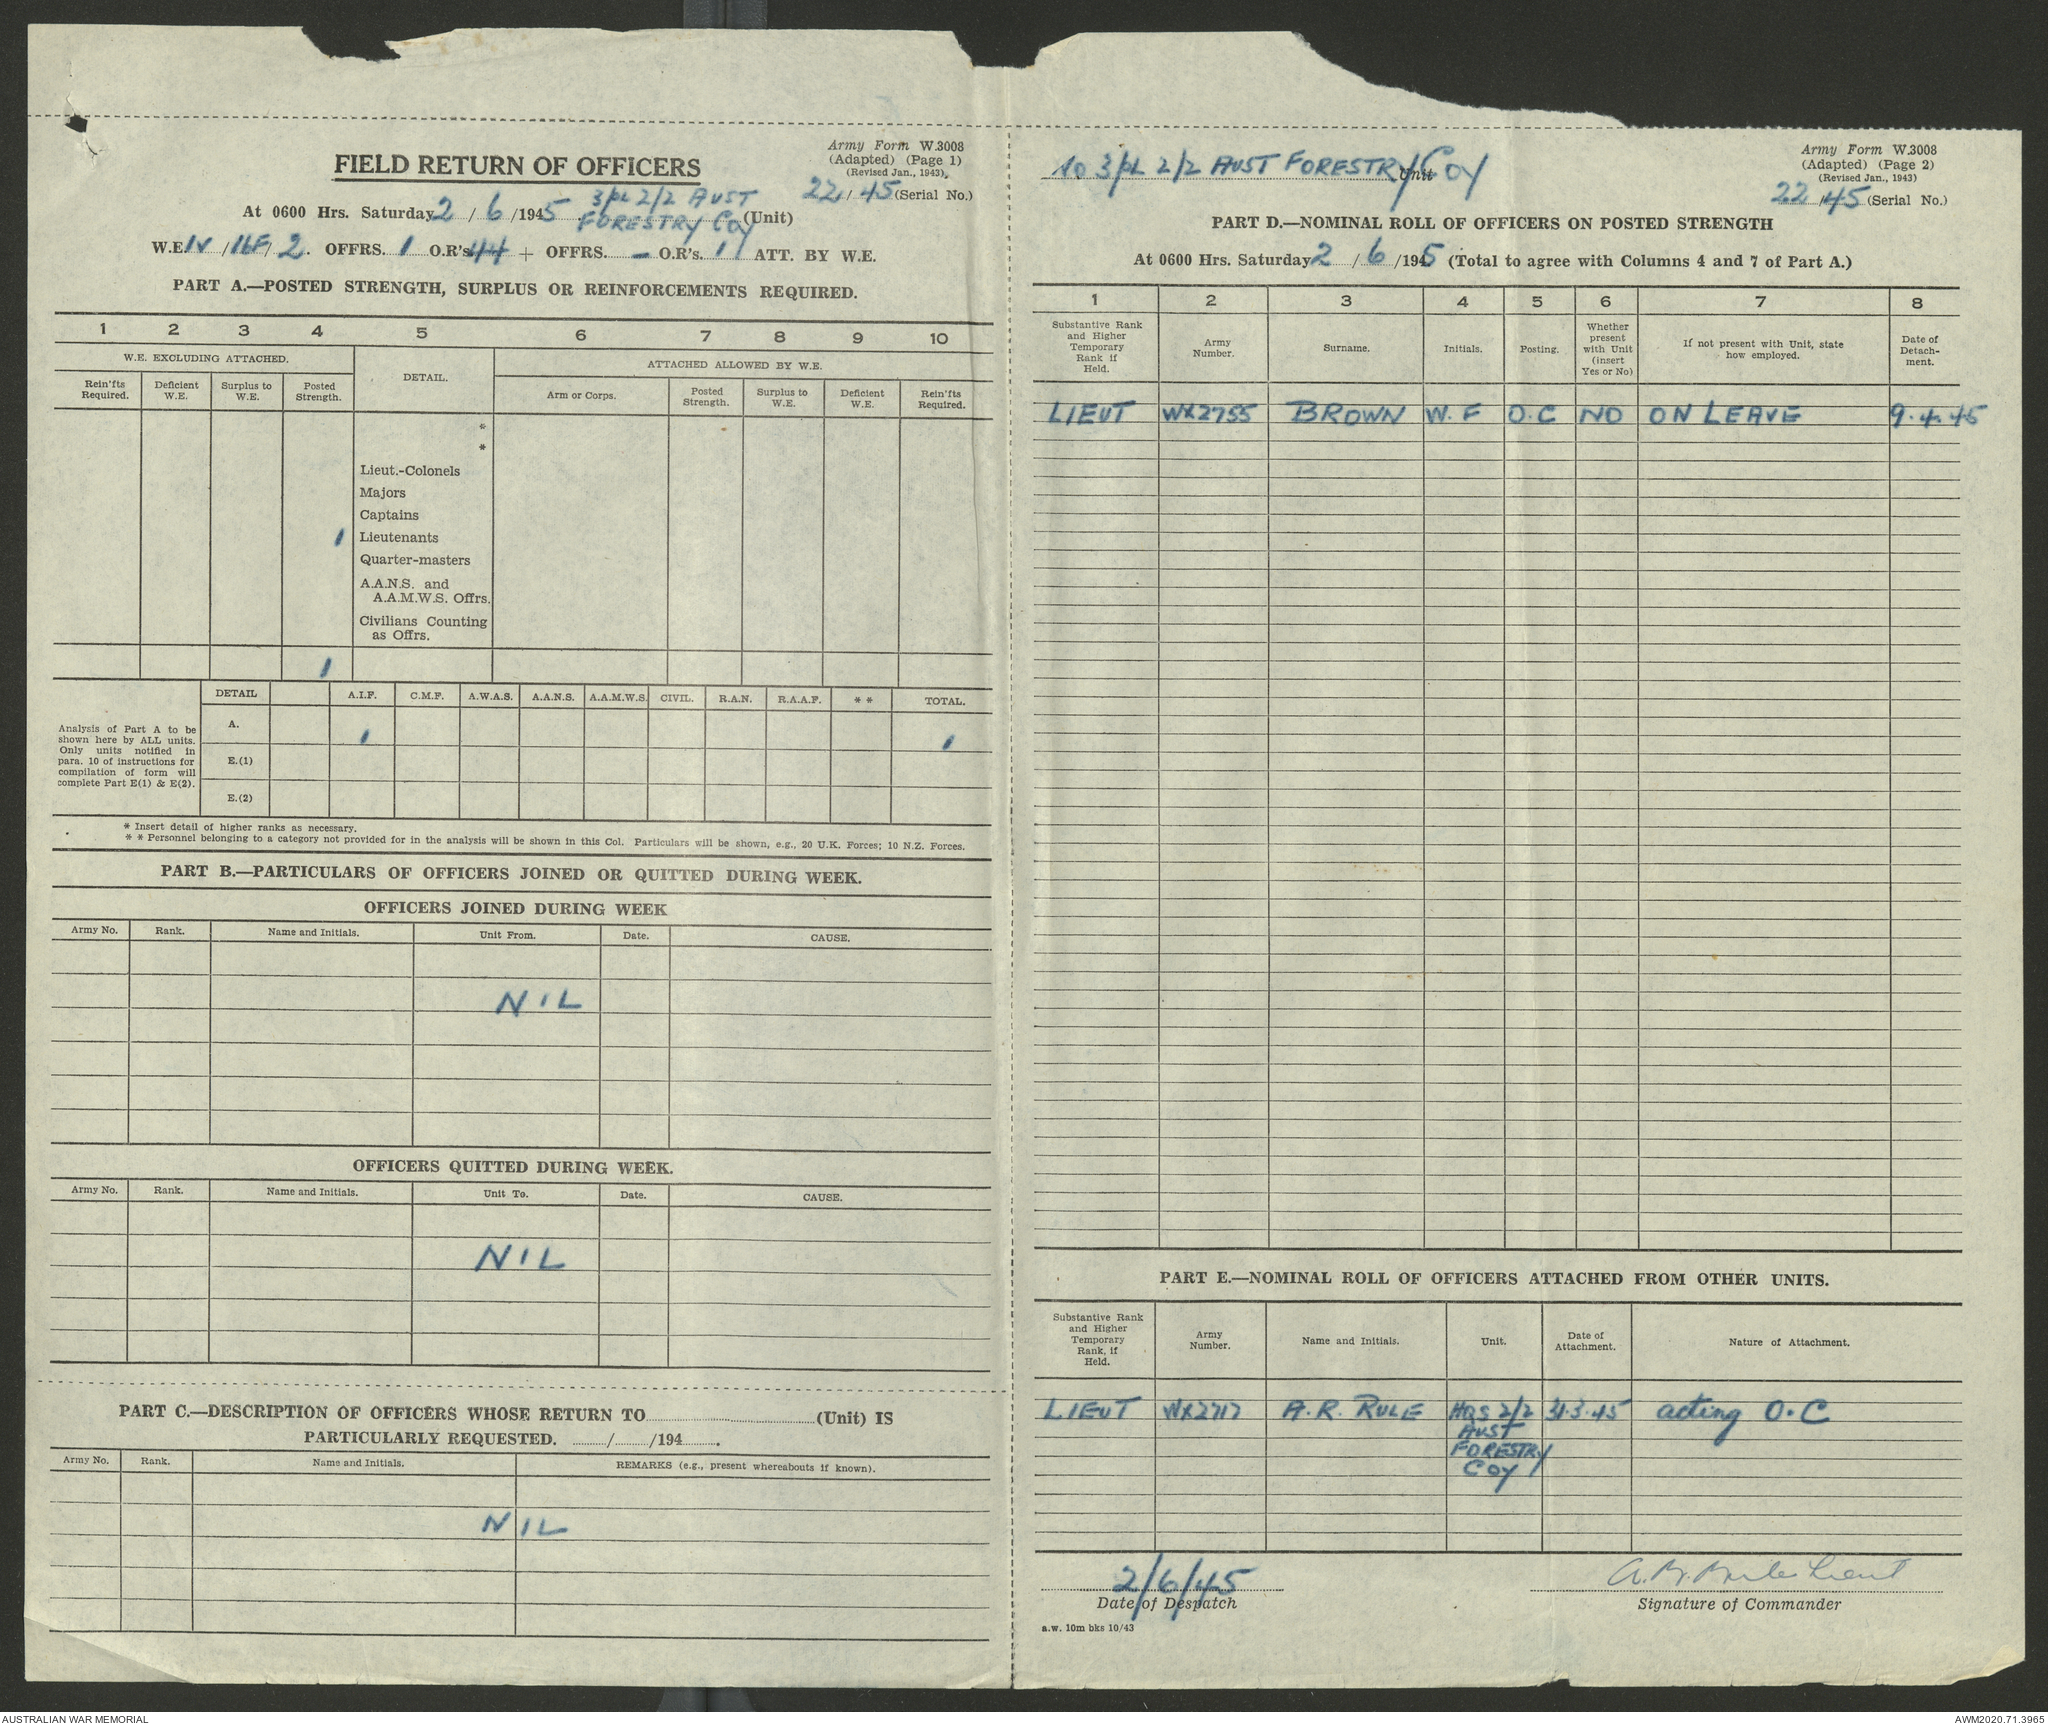 Army Form W.3008
(Adapted) (Page 1)
(Revised Jan., 1943).
FIELD RETURN OF OFFICERS
22/45 (Serial No.)
At 0600 Hrs. Saturday 2/6/1945 3/PL 2/2 AUST
FORESTRY COY (Unit)
W.E. IV/16F/2. OFFRS. 1 O.R's 44 + OFFRS. - O.R's. 11 ATT. BY W.E.
PART A.—POSTED STRENGTH, SURPLUS OR REINFORCEMENTS REQUIRED.
1 2 3 4 5 6 7 8 9 10
W.E. EXCLUDING ATTACHED. DETAIL. ATTACHED ALLOWED BY W.E.
Rein'fts Required. Deficient W.E. Surplus to W.E. Posted Strength. Arm or Corps. Posted Strength. Surplus to W.E. Deficient W.E. Rein'fts Required.
*
*
Lieut.-Colonels
Majors
Captains
1 Lieutenants
Quarter-masters
A.A.N.S. and
A.A.M.W.S. Offrs.
Civilians Counting
as Offrs.
1
DETAIL A.I.F. C.M.F. A.W.A.S. A.A.N.S. A.A.M.W.S. CIVIL. R.A.N. R.A.A.F. ** TOTAL.
Analysis of Part A to be
shown here by ALL units.
Only units notified in
para. 10 of instructions for
compilation of form will
complete Part E(1) & E(2).
A. 1 1
E.(1)
E.(2)
* Insert detail of higher ranks as necessary.
* * Personnel belonging to a category not provided for in the analysis will be shown in this Col. Particulars will be shown, e.g., 20 U.K. Forces; 10 N.Z. Forces.
PART B.—PARTICULARS OF OFFICERS JOINED OR QUITTED DURING WEEK.
OFFICERS JOINED DURING WEEK
Army No. Rank. Name and Initials. Unit From. Date. CAUSE.
NIL
OFFICERS QUITTED DURING WEEK.
Army No. Rank. Name and Initials. Unit To. Date. CAUSE.
NIL
PART C.—DESCRIPTION OF OFFICERS WHOSE RETURN TO (Unit) IS
PARTICULARLY REQUESTED. / /194 .
Army No. Rank. Name and Initials. REMARKS (e.g., present whereabouts if known).
NIL
Army Form W.3008
(Adapted) (Page 2)
(Revised Jan., 1943)
No 3/PL 2/2 AUST FORESTRY COY Unit
22/45 (Serial No.)
PART D.—NOMINAL ROLL OF OFFICERS ON POSTED STRENGTH
At 0600 Hrs. Saturday 2/6/1945 (Total to agree with Columns 4 and 7 of Part A.)
1 2 3 4 5 6 7 8
Substantive Rank and Higher Temporary Rank if Held. Army Number. Surname. Initials. Posting. Whether present with Unit (insert Yes or No) If not present with Unit, state how employed. Date of Detach-ment.
LIEUT WX2755 BROWN W.F O.C NO ON LEAVE 9.4.45
PART E.—NOMINAL ROLL OF OFFICERS ATTACHED FROM OTHER UNITS.
Substantive Rank and Higher Temporary Rank, if Held. Army Number. Name and Initials. Unit. Date of Attachment. Nature of Attachment.
LIEUT WX2717 A.R. RULE HQS 2/2 31.3.45 acting O.C
AUST
FORESTRY
COY
2/6/45 A.R. Rule Lieut
Date of Despatch Signature of Commander
a.w. 10m bks 10/43
AUSTRALIAN WAR MEMORIAL AWM2020.71.3965